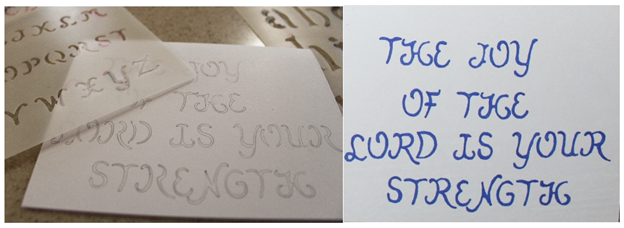 PQRST
W X Y Z
JOY
THE
LORD IS YOUR
STRENGTH
THE JOY
OF THE
LORD IS YOUR
STRENGTH